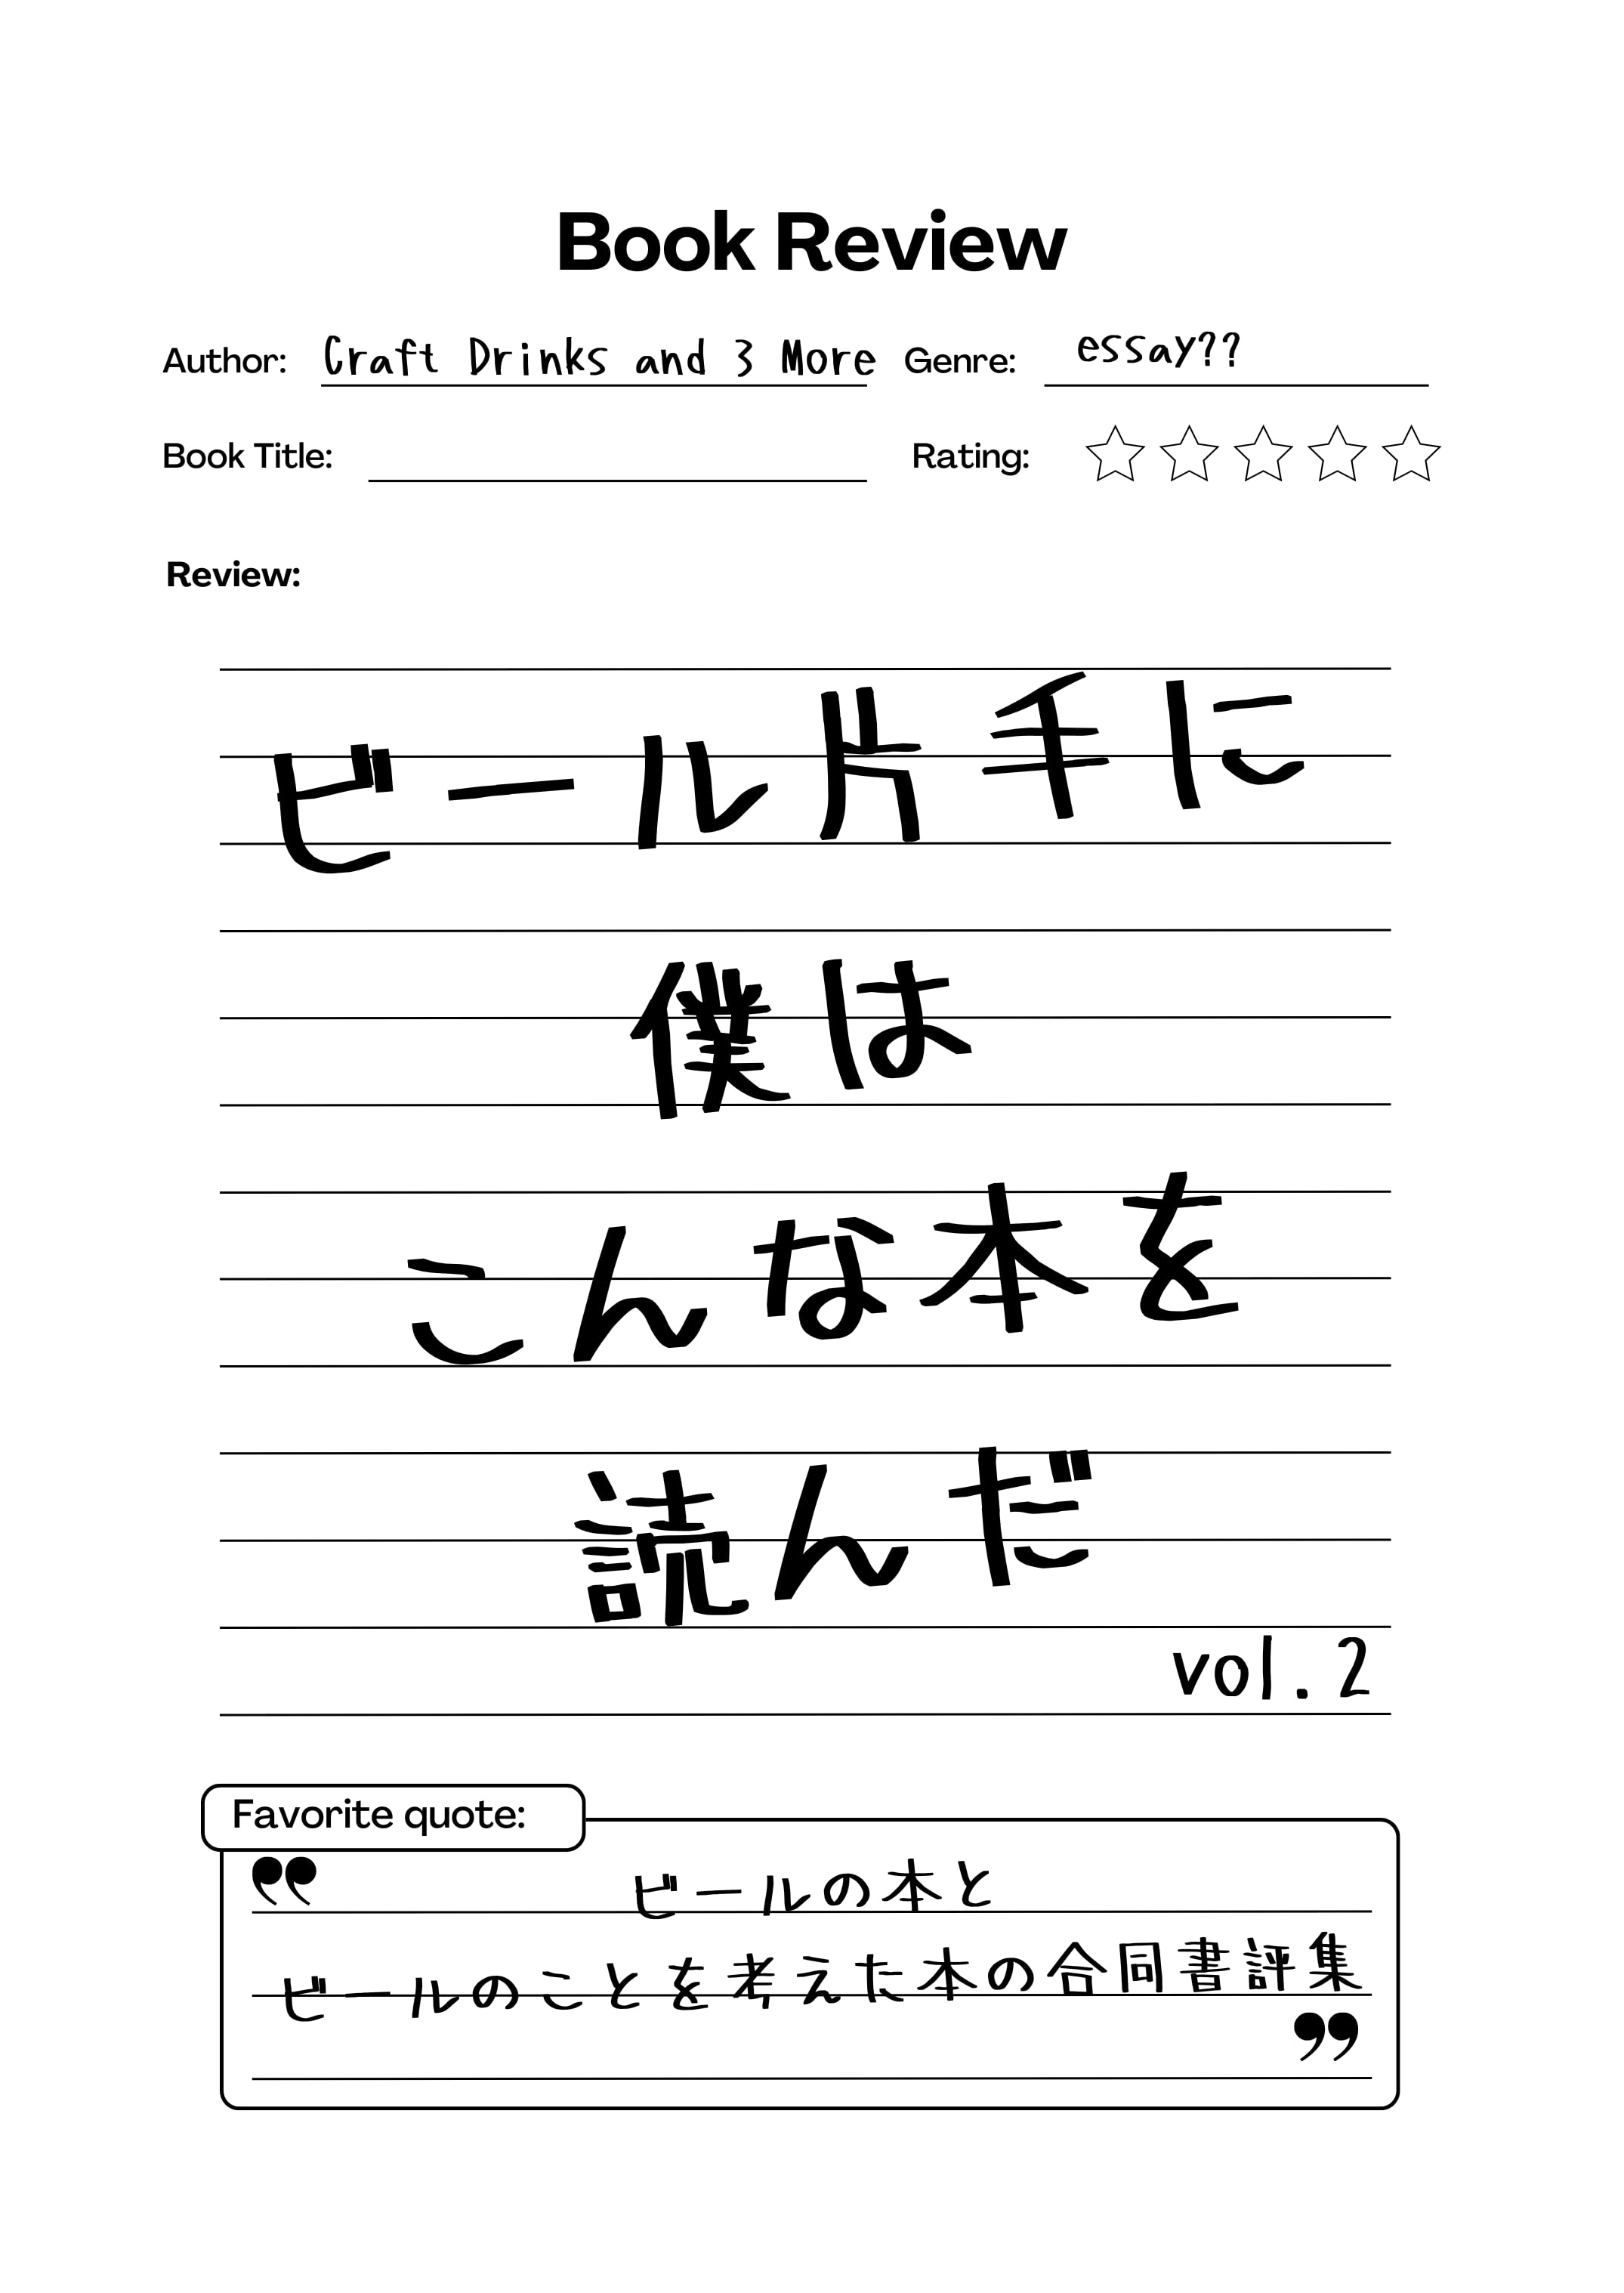 Book Review
Author: Craft Drinks and 3 More Genre: essay??
Book Title: Rating:
Review:
ビール片手に
僕は
こんな本を
読んだ
vol.2
Favorite quote:
❝ ビールの本と
ビールのことを考えた本の合同書評集
❞